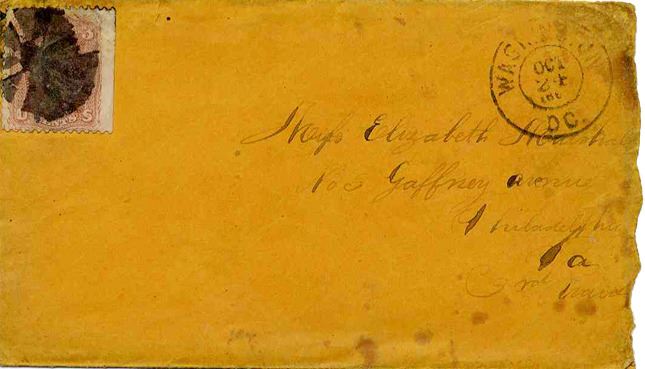 WASHINGTON
OCT
24
186
D.C.
U S
Miss Elizabeth Marshall
No 5 Gaffney avenue
Philadelphia
Pa
3rd ward